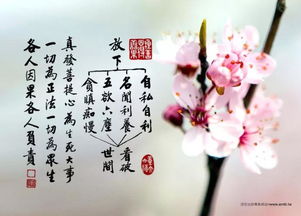 放下
自私自利
名聞利養
五欲六塵
貪瞋痴慢
看破
世間
真發菩提心為生死大事
一切為正法一切為眾生
各人因果各人負責